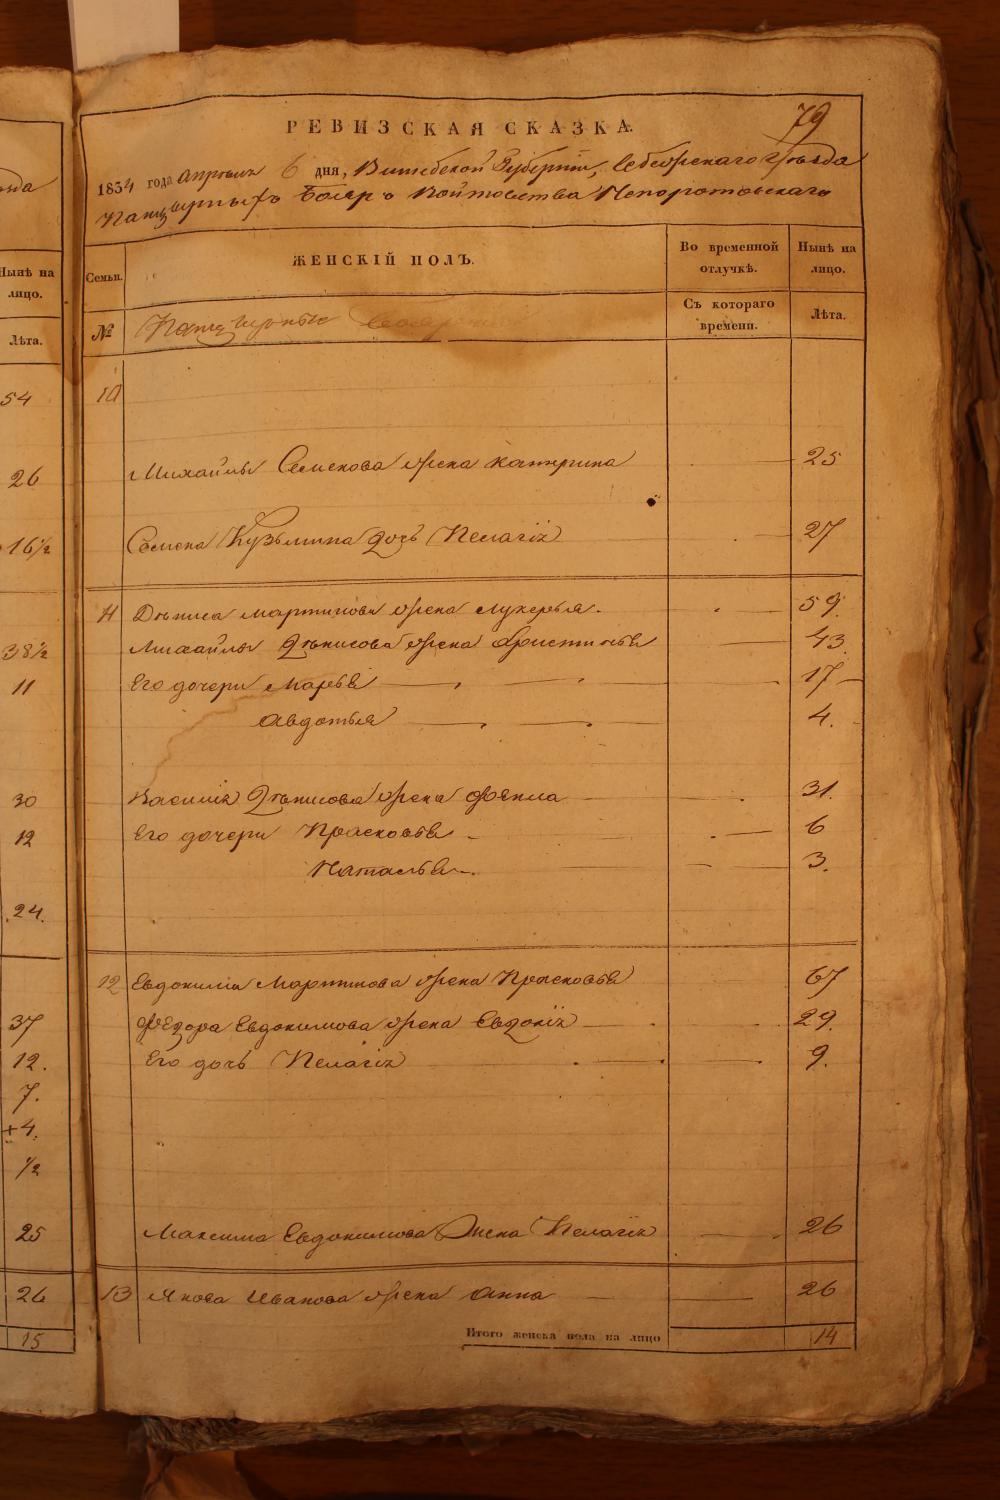 79
РЕВИЗСКАЯ СКАЗКА.
1834 года Апреля 6 дня, Витебской Губернии, Себежскаго уѣзда
Панцырныхъ Бояръ Войтовства Непоротовскаго
Семьи.
ЖЕНСКІЙ ПОЛЪ.
Во временной отлучкѣ.
Нынѣ на лицо.
№
Панцырные
Съ котораго времени.
Лѣта.
10
Михайлы Семенова жена Катерина 25
Семена Кузьмина дочь Пелагія 27
11 Дѣниса Мартинова жена Лукерья. 59.
Михайлы Дѣнисова жена Христинья 43.
Его дочери Марья 17
Авдотья 4.
Василія Дѣнисова жена Фекла 31.
Его дочери Прасковья 6
Наталья 3.
12 Евдокима Мартинова жена Прасковья 67
Федора Евдокимова жена Евдокія 29.
Его дочь Пелагія 9.
Максима Евдокимова Жена Пелагія 26
13 Якова Иванова жена Анна 26
Итого женска пола на лицо 14
Нынѣ на лицо.
Лѣта.
54
26
16½
38½
11
30
12
24.
37
12.
7.
4.
½
25
26
15